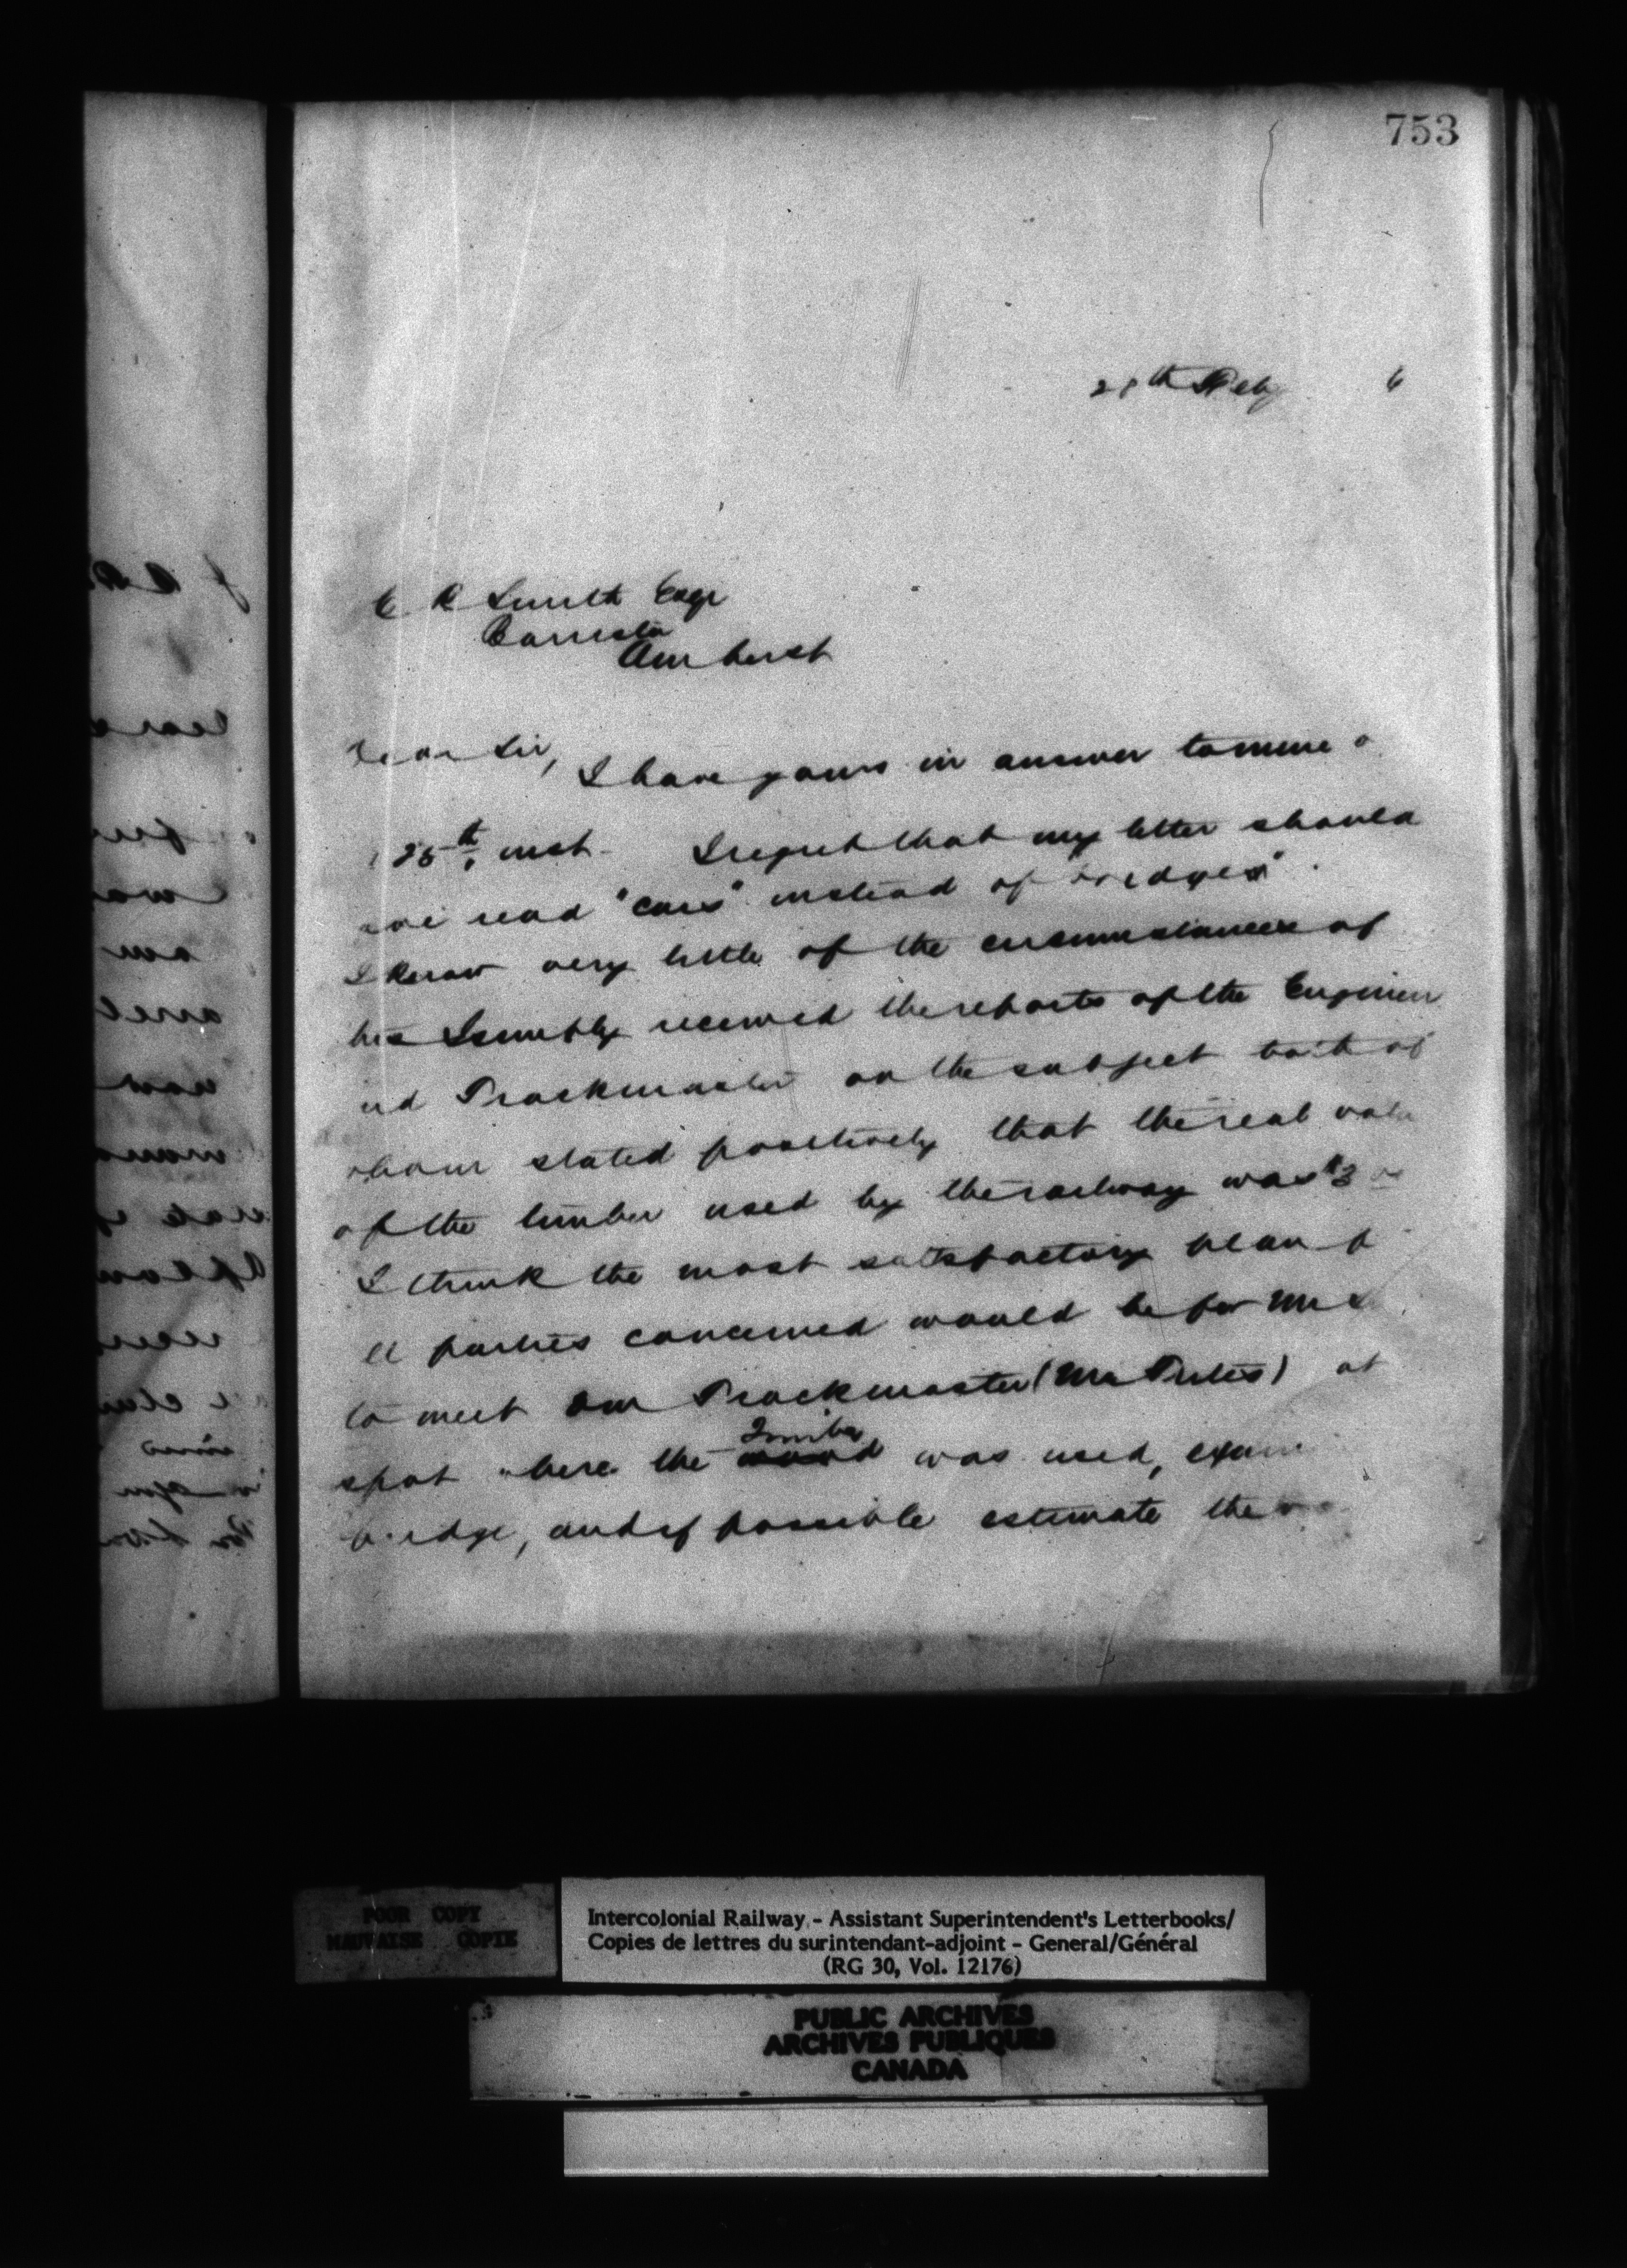 753
28th Feby 6
C R Smith Esqr
Barrister
Amherst
Dear Sir,
I have yours in answer to mine o
25th inst. I regret that my letter should
ave read "cars" instead of bridges".
I know very little of the circumstances of
his I simply received the reports of the Engineer
nd Trackmaster on the subject both of
whom stated positively that the real valu
of the timber used by the railway was $3
I think the most satisfactory plan f
ll parties concerned would be for Mr
to meet our Trackmaster (Mr ) at
spot where the Timber was used, exam
bridge, and if possible estimate the
POOR COPY
MAUVAISE COPIE
Intercolonial Railway - Assistant Superintendent's Letterbooks/
Copies de lettres du surintendant-adjoint - General/Général
(RG 30, Vol. 12176)
PUBLIC ARCHIVES
ARCHIVES PUBLIQUES
CANADA